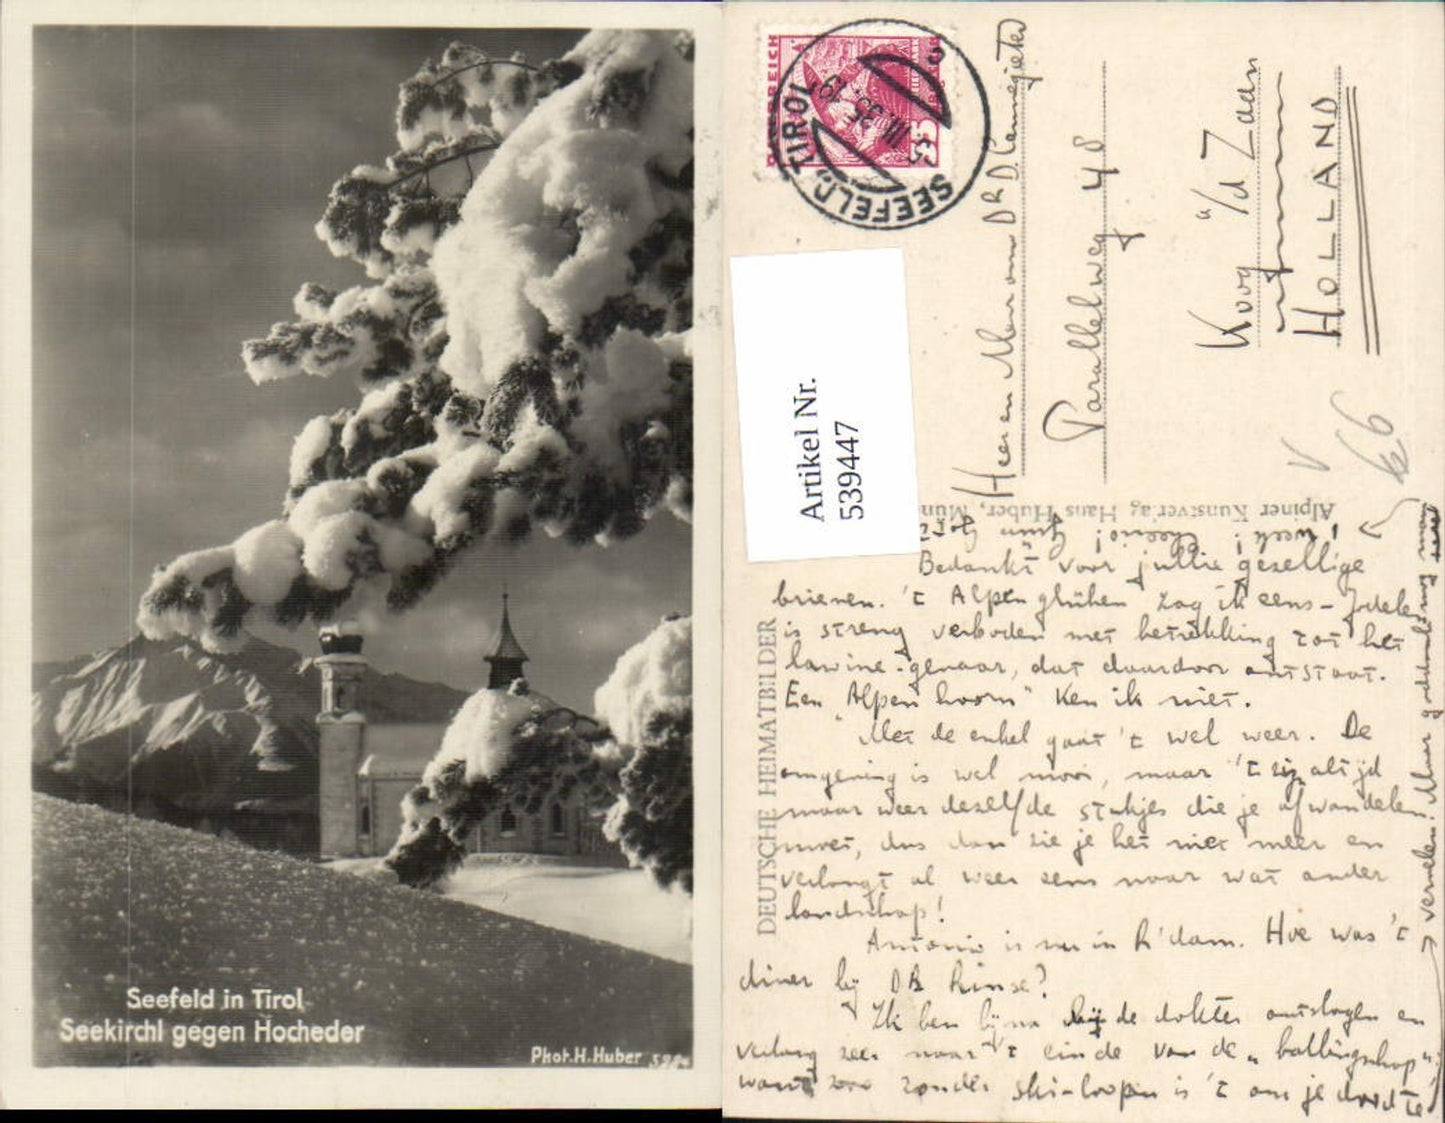 Seefeld in Tirol
Seekirchl gegen Hocheder
Phot. H. Huber
ÖSTERREICH
SEEFELD, TIROL
5.III.35.19
Artikel Nr.
539447
Heer en Mevrouw DR D.
Parallelweg 48
Koog a/d Zaan
HOLLAND
Alpiner Kunstverlag Hans Huber, Mün
DEUTSCHE HEIMATBILDER
Bedankt voor jullie gezellige
brieven. 't Alpenglühen zag ik eens - Jodelen
is streng verboden met betrekking tot het
lawine-gevaar, dat daardoor ontstaat.
Een "Alpenhoorn" ken ik niet.
Met de enkel gaat 't wel weer. De
omgeving is wel mooi, maar 't zijn altijd
maar weer dezelfde stukjes die je afwandelen
moet, dus dan zie je het niet meer en
verlangt al weer eens naar wat ander
landschap!
Antonio is nu in R'dam. Hoe was 't
diner bij DR Rinse?
Ik ben bijna bij de dokter ontslagen en
verlang zeer naar 't einde van de "ballingschap"
want zoo zonder ski-loopen is 't om je dood te
vervelen. Maar
week! Cheerio!